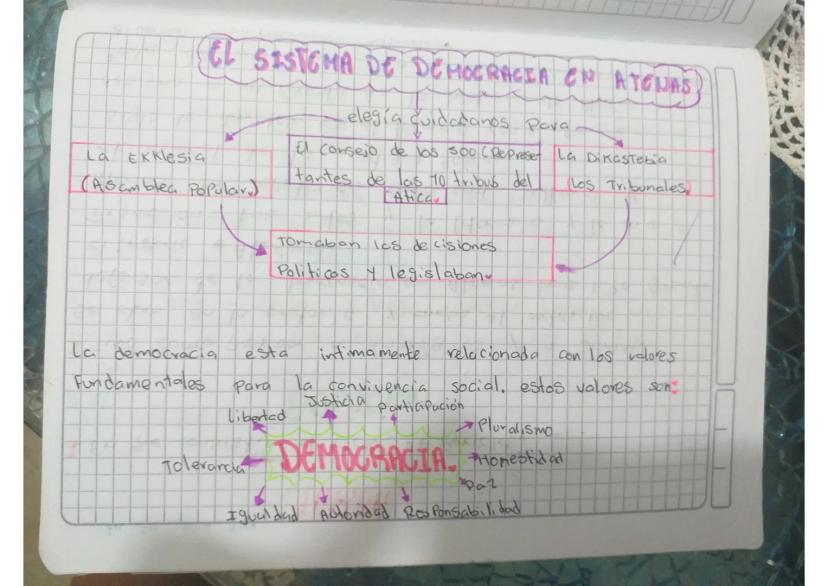 EL SISTEMA DE DEMOCRACIA EN ATENAS
elegía cuidadanos para
La Ekklesia
(Asamblea Popular.)
El consejo de los 500 (Represe
tantes de las 10 tribus del
Atica.
La Dikasteria
Los Tribunales.
Tomaban las decisiones
Politicas y legislaban.
La democracia esta intimamente relacionada con los valores
Fundamentales para la convivencia social. estos valores son:
Justicia Participación
libertad
Pluralismo
DEMOCRACIA.
Tolerancia
Honestidad
Paz
Igualdad Autoridad Responsabilidad